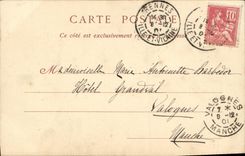 CARTE POSTALE
Ce côté est exclusivement
RENNES
ILLE-ET-VILAINE
10
Mademoiselle Marie Antoinette
Hôtel Grandval
Valognes
Manche
VALOGNES
MANCHE